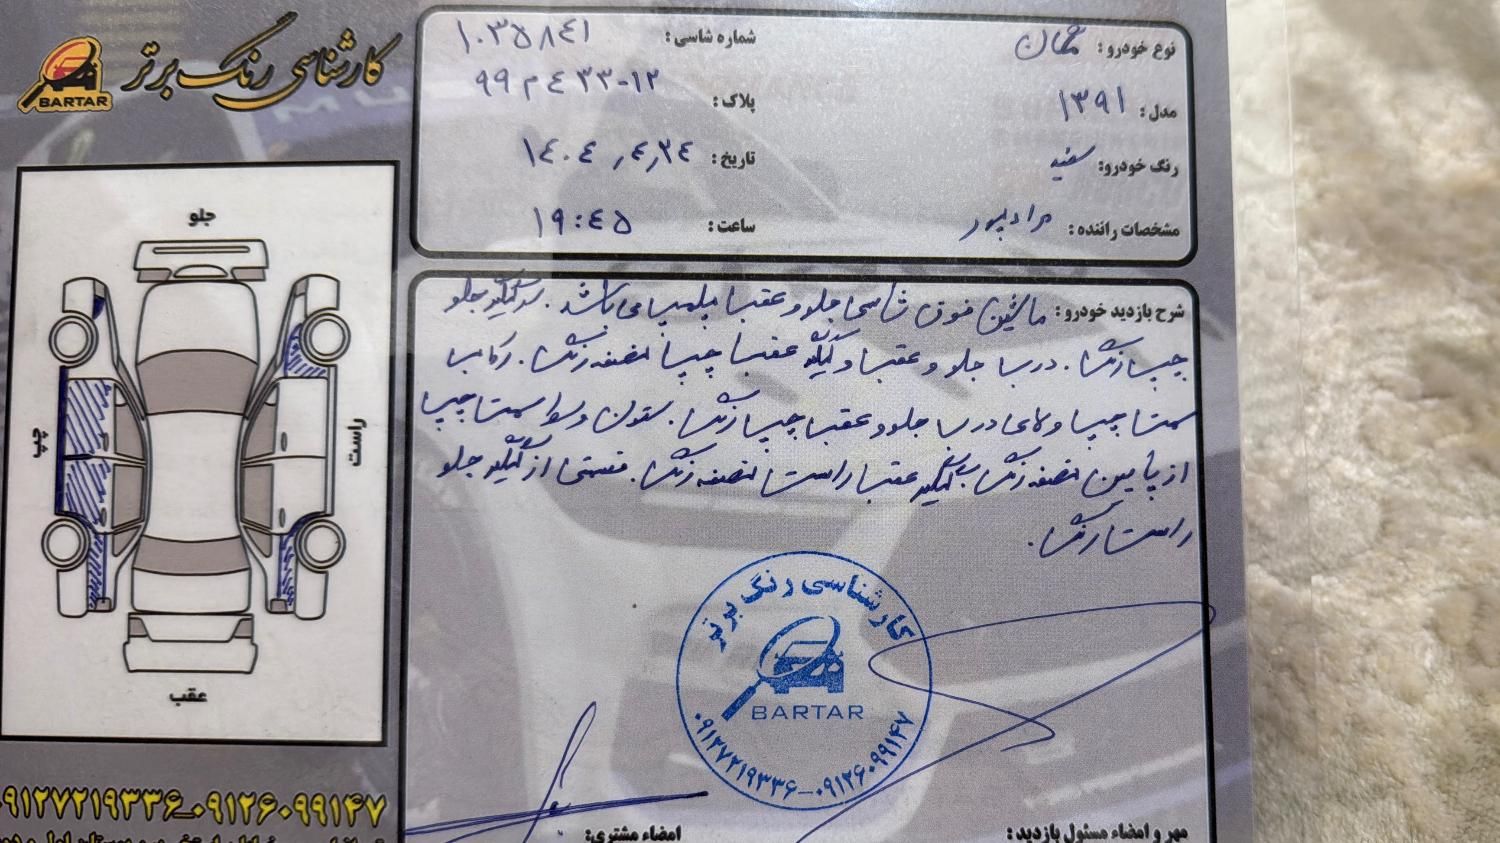 کارشناسی رنگ برتر
BARTAR
نوع خودرو:
شماره شاسی: ۱۰۳۵۸۴۱
مدل: ۱۳۹۱
پلاک: ۹۹ م ۴۳۳-۱۲
رنگ خودرو: سفید
تاریخ: ۱۴۰۴,۴,۲۴
مشخصات راننده: مرادپور
ساعت: ۱۹:۴۵
شرح بازدید خودرو: ماشین فوق شاسی جلو و عقب پلمپ می باشد. سرگلگیر جلو
چپ رنگ. درب جلو و عقب و گلگیر عقب چپ نصفه رنگ. رکاب
سمت چپ و لای درب جلو و عقب چپ رنگ. ستون وسط سمت چپ
از پایین نصفه رنگ. گلگیر عقب راست نصفه رنگ. قسمتی از گلگیر جلو
راست رنگ.
جلو
چپ
راست
عقب
کارشناسی رنگ برتر
BARTAR
۰۹۱۲۷۲۱۹۳۳۶-۰۹۱۲۶۰۹۹۱۴۷
مهر و امضاء مسئول بازدید:
امضاء مشتری:
۰۹۱۲۷۲۱۹۳۳۶-۰۹۱۲۶۰۹۹۱۴۷